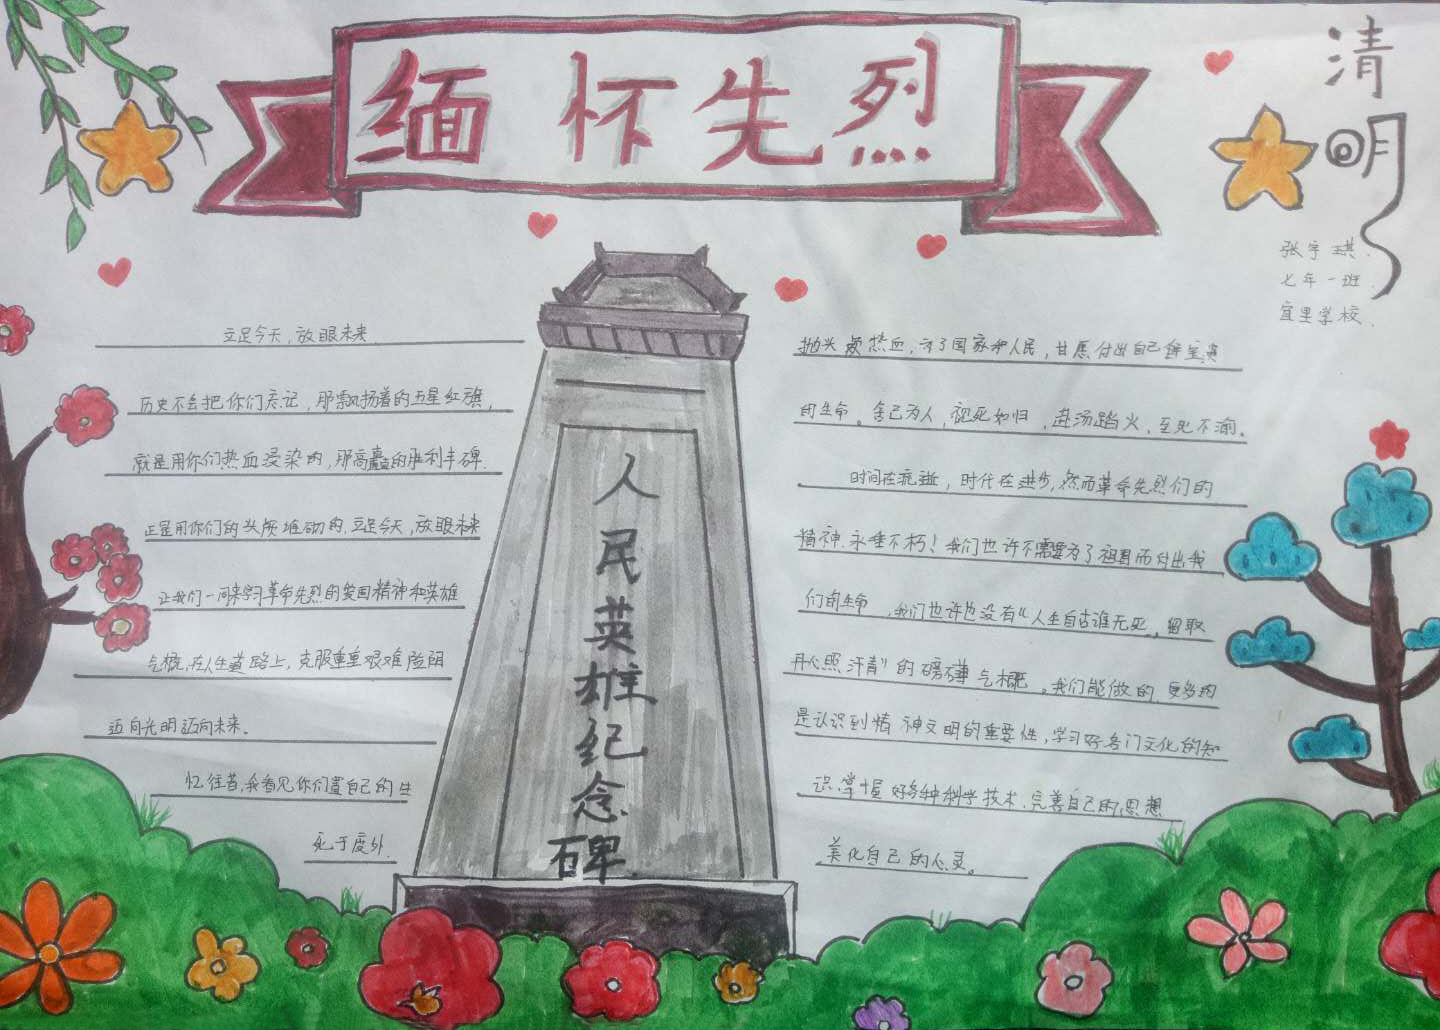 缅怀先烈
清明
张宇琪
七年一班
宜里学校
立足今天，放眼未来
历史不会把你们忘记，那飘扬着的五星红旗，
就是用你们热血浸染的，那高矗的胜利丰碑
正是用你们的头颅堆砌的.立足今天，放眼未来
让我们一同来学习革命先烈的爱国精神和英雄
气概，在人生道路上，克服重重艰难险阻
迈向光明迈向未来。
忆往昔，我看见你们置自己的生
死于度外.
人民英雄纪念碑
抛头颅热血，为了国家和人民，甘愿付出自己
的生命。舍己为人，视死如归，赴汤蹈火，至死不渝。
时间在流逝，时代在进步，然而革命先烈们的
精神.永垂不朽！我们也许不需要为了祖国而付出我
们的生命，我们也许也没有“人生自古谁无死，留取
丹心照汗青”的磅礴气概。我们能做的更多的
是认识到精神文明的重要性，学习好各门文化的知
识.掌握好各种科学技术.完善自己的思想
美化自己的心灵。